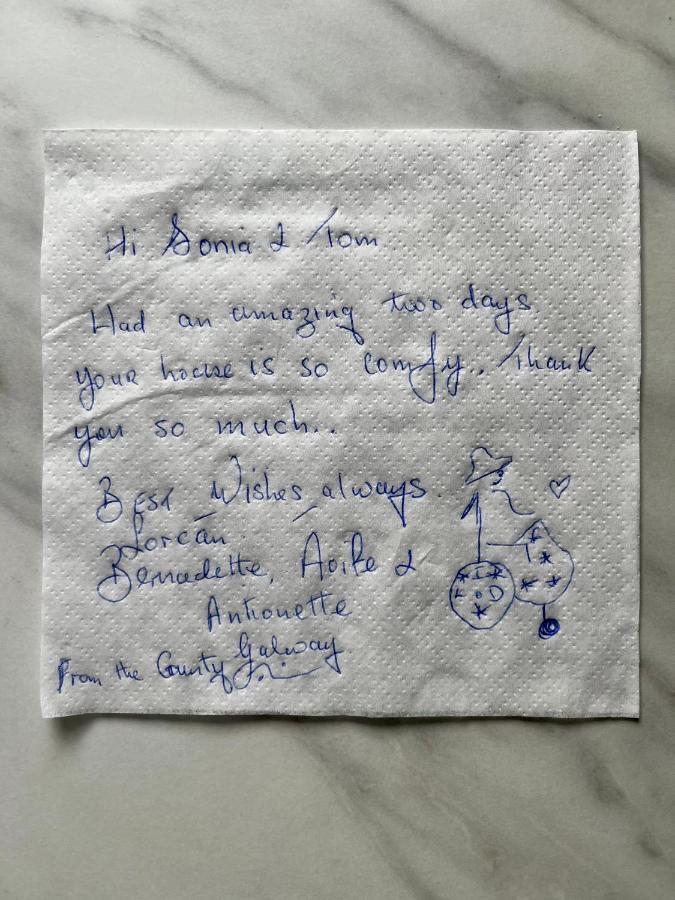 Hi Sonia & Tom
Had an amazing two days.
Your house is so comfy.. Thank
you so much..
Best Wishes always.
Lorcán
Bernadette, Aoife &
Antionette
From the County Galway.